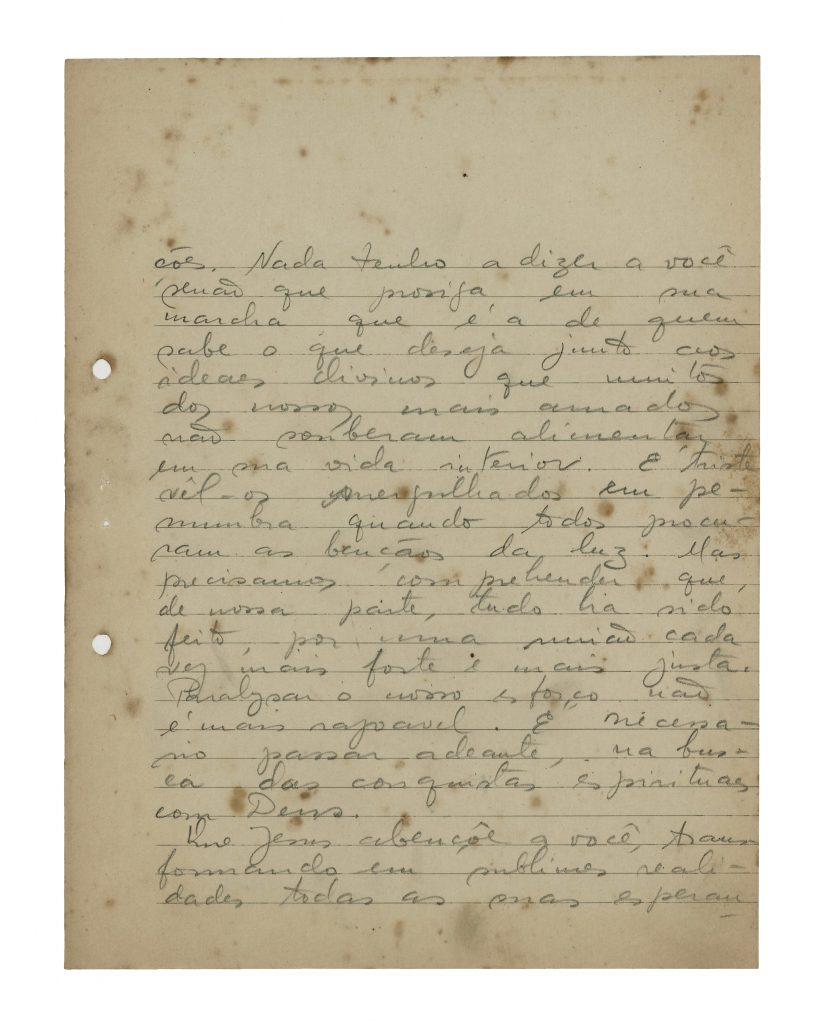 ções. Nada tenho a dizer a você
senão que prosiga em sua
marcha que é a de quem
sabe o que deseja junto aos
ideaes divinos que muitos
dos nossos mais amados
não souberam alimentar
em sua vida interior. É triste
vêl-os mergulhados em pe-
numbra quando todos procu-
ram as bençãos da luz. Mas
precisamos comprehender que,
de nossa parte, tudo ha sido
feito, por uma união cada
vez mais forte e mais justa.
Paralysar o nosso esforço não
é mais razoavel. É necessa-
rio passar adeante, na bus-
ca das conquistas espirituaes
com Deus.
Que Jesus abençôe a você, trans-
formando em sublimes reali-
dades todas as suas esperan-